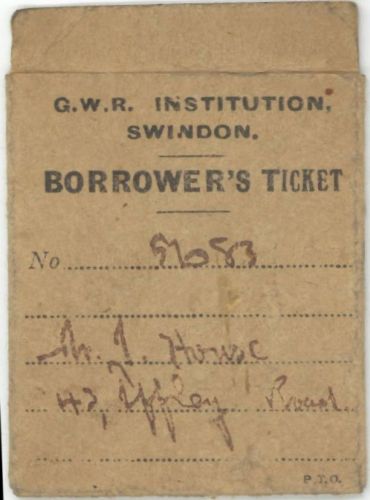 G.W.R. INSTITUTION,
SWINDON.
BORROWER'S TICKET
No 51083
Mr. J. House
43, Iffley Road.
P.T.O.